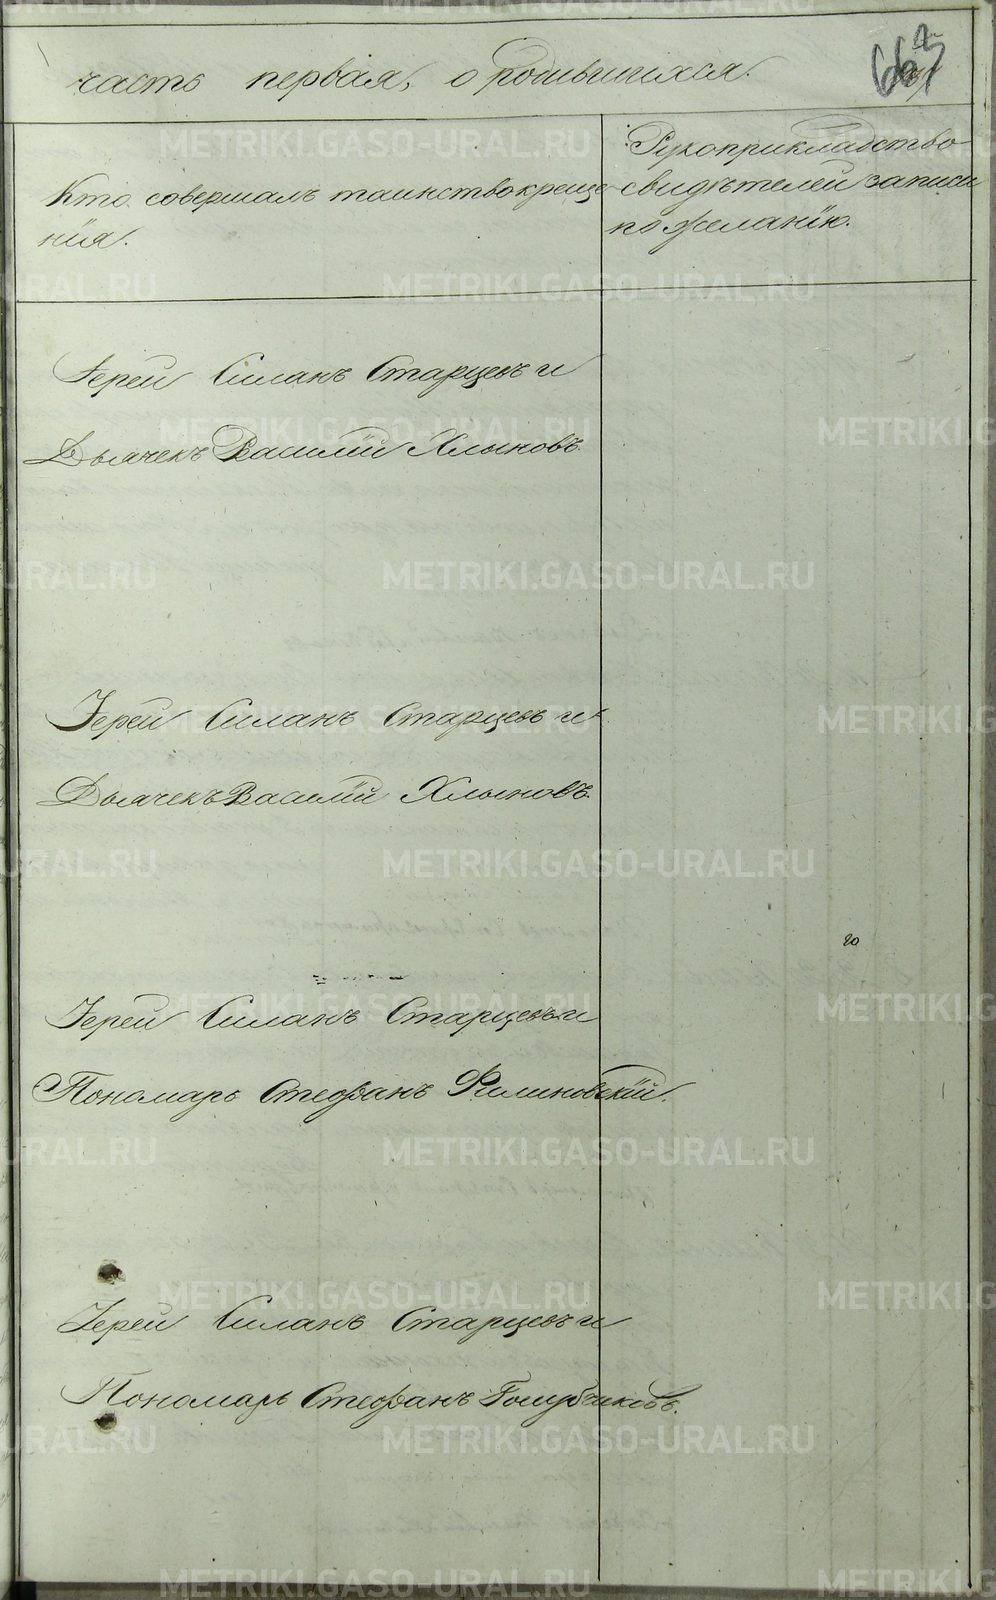 663
часть первая, о родившихся.
Кто совершалъ таинство креще-
нія.
Рукоприкладство
свидѣтелей записи
по желанію.
Іерей Силанъ Старцевъ и
Дьячекъ Василій Хлыновъ.
Іерей Силанъ Старцевъ и
Дьячекъ Василій Хлыновъ.
Іерей Силанъ Старцевъ и
Пономарь Стефанъ Филиновскій.
Іерей Силанъ Старцевъ и
Пономарь Стефанъ Голубчиковъ.
METRIKI.GASO-URAL.RU